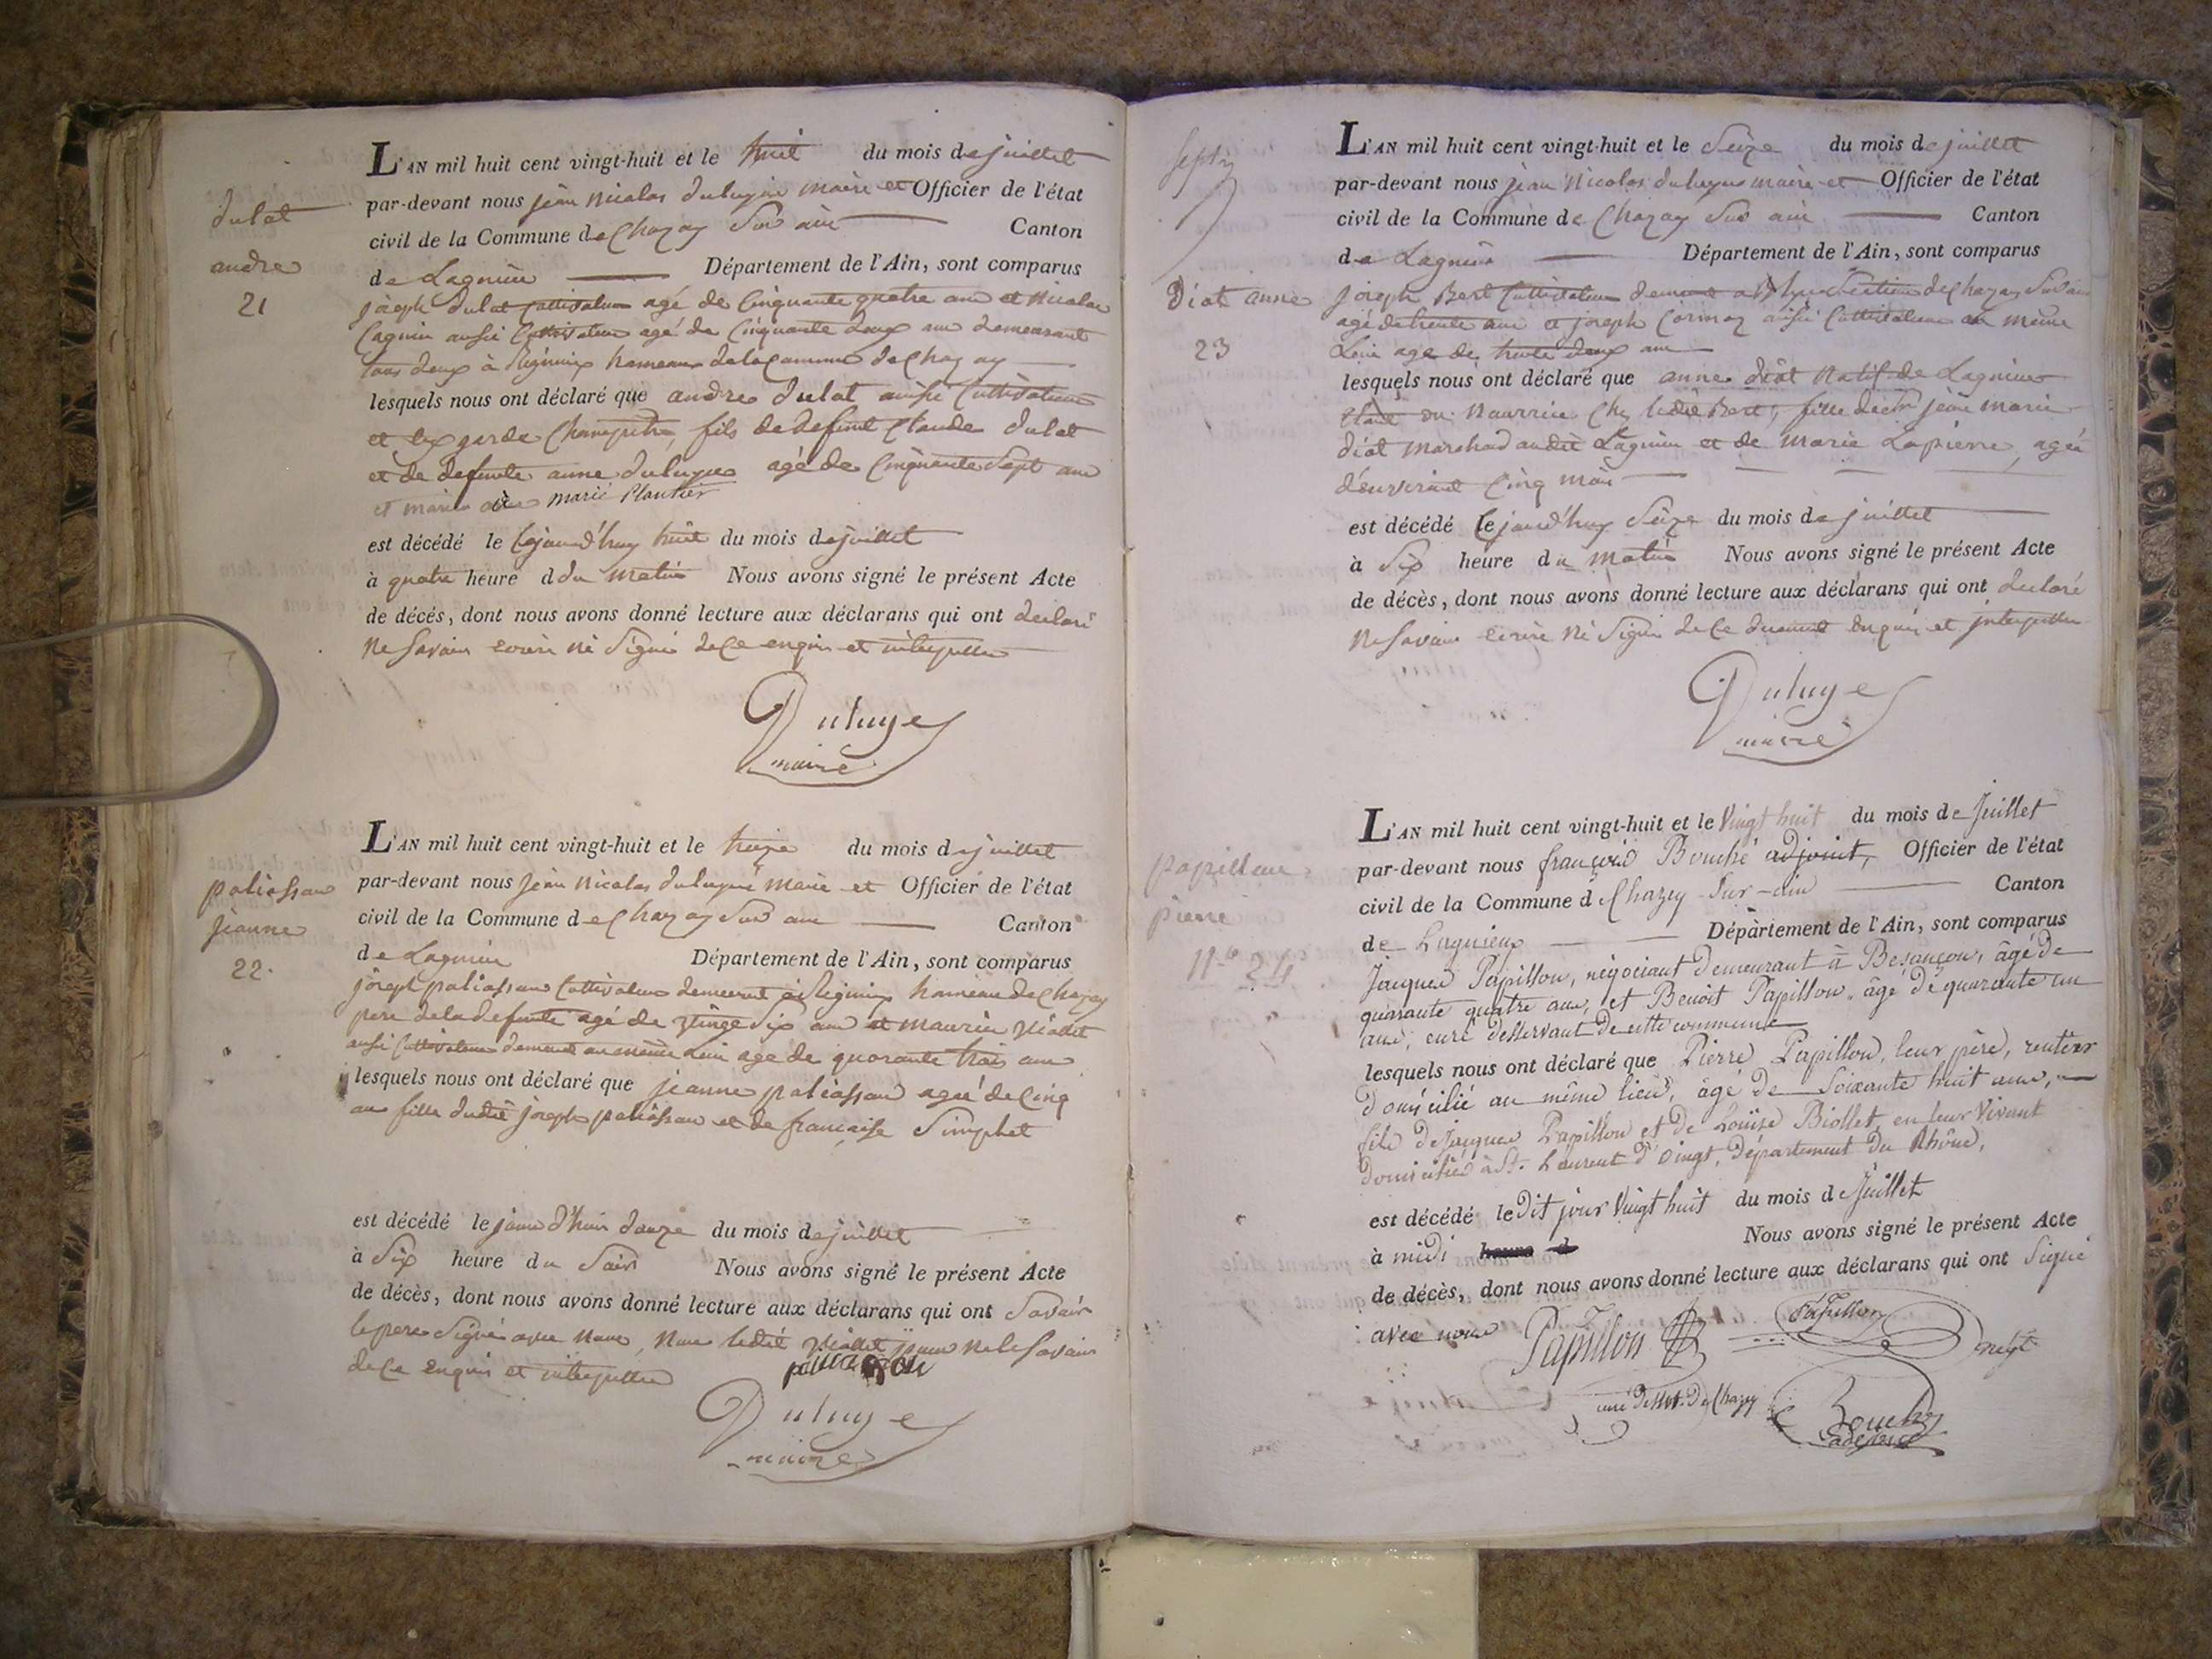 dulat
andre
21
L'AN mil huit cent vingt-huit et le huit du mois de juillet
par-devant nous jean nicolas duluye maire et Officier de l'état
civil de la Commune de Chazay Sur ain Canton
de Lagnieu Département de l'Ain, sont comparus
joseph dulat Cultivateur agé de Cinquante quatre ans et nicolas
Cagnin aussi Cultivateur agé de Cinquante deux ans demeurant
tous deux à Rignieux hameau de la commune de Chazay
lesquels nous ont déclaré que andre dulat aussi Cultivateur
et Ex garde Champetre, fils de defunt Claude dulat
et de defunte anne duluye agé de Cinquante Sept ans
et marié à marie Plantier
est décédé le Cejourd'huy huit du mois de juillet
à quatre heure d du matin Nous avons signé le présent Acte
de décès, dont nous avons donné lecture aux déclarans qui ont declaré
ne Savoir ecrire ni Signé de Ce enquis et interpellé
Duluye
maire
paliassau
jeanne
22.
L'AN mil huit cent vingt-huit et le treize du mois de juillet
par-devant nous jean nicolas duluye Maire et Officier de l'état
civil de la Commune de Chazay Sur ain Canton
de Lagnieu Département de l'Ain, sont comparus
joseph paliassau Cultivateur demeurant à Rignieux hameau de Chazay
pere de la defunte agé de Six ans et maurice
aussi Cultivateur demeurant au même Lieu age de quarante trois ans
lesquels nous ont déclaré que jeanne paliassau agée de Cinq
ans fille dudit joseph paliassau et de francaise Simphet
est décédé le jourd'huis douze du mois de juillet
à Six heure du Soir Nous avons signé le présent Acte
de décès, dont nous avons donné lecture aux déclarans qui ont Savoir
le pere Signé avec Nous, ledit pour ne le Savoir
de Ce enquis et interpellé
Duluye
maire
Diot anne
23
L'AN mil huit cent vingt-huit et le Seize du mois de juillet
par-devant nous jean Nicolas duluye maire et Officier de l'état
civil de la Commune de Chazay Sur ain Canton
de Lagnieu Département de l'Ain, sont comparus
joseph Bert Cultivateur Section de Chazay Sur ain
agé de trente ans et joseph Cormoz aussi Cultivateur au même
Lieu age de trente deux ans
lesquels nous ont déclaré que anne diot Natif de Lagnieu
en Nourrice Chez ledit Bert, fille de jean marie
diot marchand audit Lagnieu et de Marie Lapierre, agée
d'environt Cinq mois
est décédé Cejourd'huy Seize du mois de juillet
à Six heure du matin Nous avons signé le présent Acte
de décès, dont nous avons donné lecture aux déclarans qui ont declaré
Ne Savoir ecrire Ni Signer de Ce enquis et interpellé
Duluye
maire
papillon
pierre
N.º 24
L'AN mil huit cent vingt-huit et le Vingt huit du mois de Juillet
par-devant nous françois Bouché adjoint, Officier de l'état
civil de la Commune d Chazey-Sur-ain Canton
de Lagnieux Département de l'Ain, sont comparus
Jacques Papillon, négociant demeurant à Besançon, âgé de
quarante quatre ans, et Benoit Papillon, âgé de quarante un
ans, curé desservant de cette commune
lesquels nous ont déclaré que Pierre Papillon, leur père, rentier
domicilié au même lieu, âgé de Soixante huit ans,
fils de Jacques Papillon et de Louise Biollet, en leur Vivant
domiciliés à St. Laurent d'Oingt, Département du Rhône,
est décédé le Dit jour Vingt huit du mois de Juillet
à midi heure d Nous avons signé le présent Acte
de décès, dont nous avons donné lecture aux déclarans qui ont Signé
avec nous Papillon Papillon
curé desvt. De Chazey
Bouché
adjoint